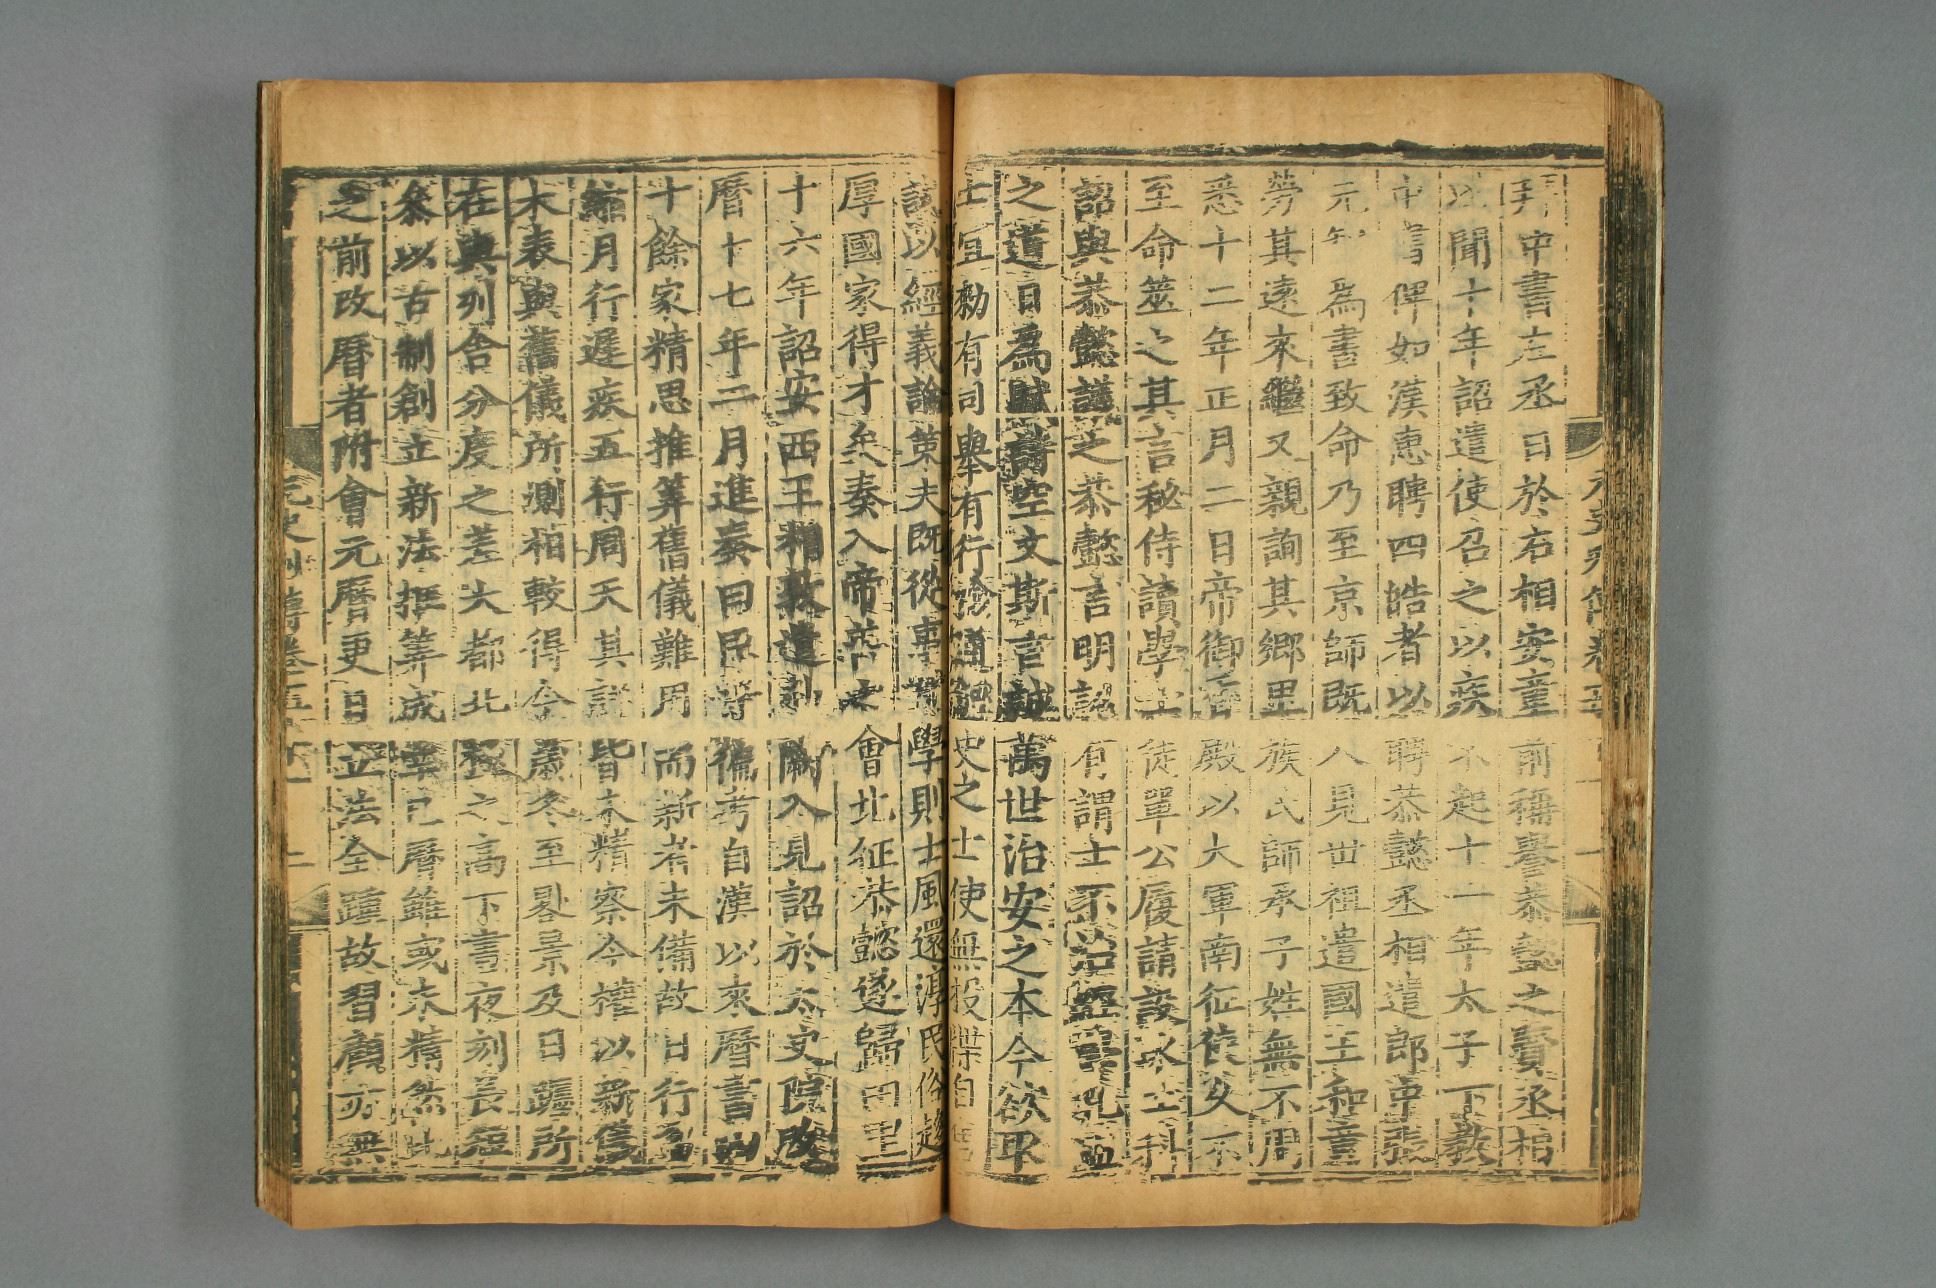 拜中書左丞日於右相安童前稱譽恭懿之賢丞相
以聞十年詔遣使召之以疾不起十一年太子下教
中書俾如漢惠聘四皓者以聘恭懿丞相遣郎中張
元智爲書致命乃至京師既入見世祖遣國王和童
勞其遠來繼又親詢其鄉里族氏師承子姓無不周
悉十二年正月二日帝御香殿以大軍南征使久不
至命筮之其言秘侍讀學士徒單公履請設取士科
詔與恭懿議之恭懿言明詔有謂士不治經學孔孟
之道日爲賦詩空文斯言誠萬世治安之本今欲取
士宜勑有司舉有行檢通經史之士使無投牒自售
試以經義論策夫既從事實學則士風還淳民俗趨
厚國家得才矣奏入帝善之會北征恭懿遂歸田里
十六年詔安西王相敦遣赴闕入見詔於太史院改
曆十七年二月進奏曰臣等徧考自漢以來曆書四
十餘家精思推筭舊儀難用而新者未備故日行盈
縮月行遲疾五行周天其詳皆未精察今權以新儀
木表與舊儀所測相較得今歲冬至晷景及日躔所
在與列舍分度之差大都北極之高下晝夜刻長短
叅以古制創立新法推筭成辛巳曆雖或未精然比
之前改曆者附會元曆更日立法全踵故習顧亦無
元史列傳卷五十一 二